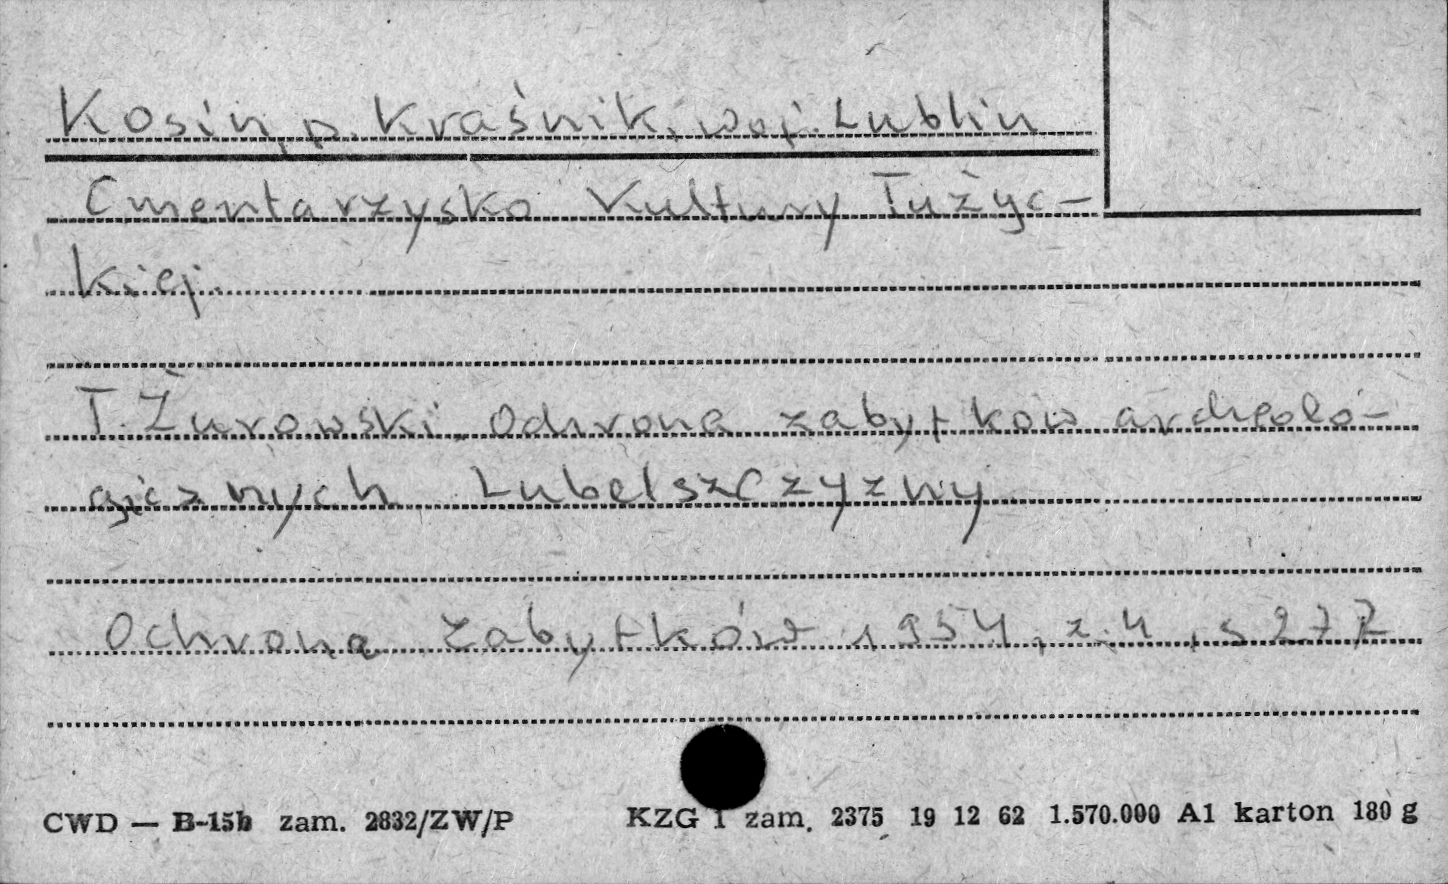 Kosin, p. Kraśnik, woj. Lublin
Cmentarzysko Kultury Łużyc-
kiej.
T. Żurowski. Ochrona zabytków archeolo-
gicznych Lubelszczyzny
Ochrona Zabytków 1954, z. 4, s 277
CWD — B-15b zam. 2832/ZW/P KZG 1 zam. 2375 19 12 62 1.570.000 A1 karton 180 g